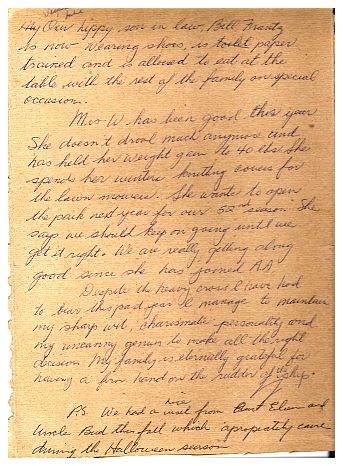 My Our hippy son in law, Bill Frantz
is now wearing shoes, is toilet paper
trained and is allowed to eat at the
table with the rest of the family on special
occasion.
Mrs W has been good this year
She doesn't drool much anymore and
has held her weight gain to 40 lbs. She
spends her winters knitting covers for
the lawn mowers. She wants to open
the park next year for our 52nd season. She
says we should keep on going until we
get it right. We are really getting along
good since she has joined AA
Despite the heavy cross I have had
to bear this past year I manage to maintain
my sharp wit, charismatic personality and
my uncanny genius to make all the right
decision. My family is eternally grateful for
having a firm hand on the rudder of the ship.
nice
PS We had a visit from Aunt and
Uncle Bud this fall which apropriately came
during the Halloween season